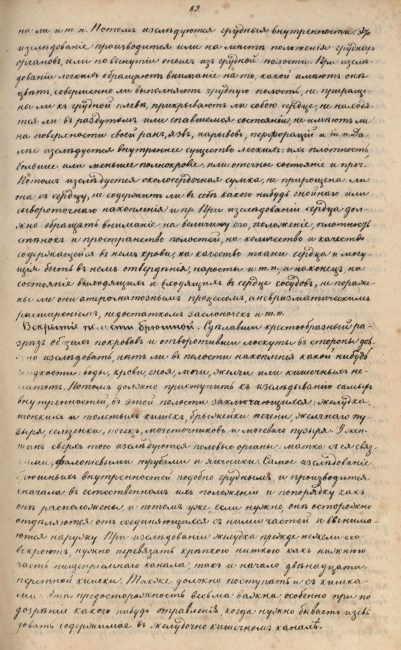 12
но ли и т. п. Потомъ изслѣдуются грудныя внутренности. Это
изслѣдованіе производится или на мѣстѣ положенія грудныхъ
органовъ, или по вынутіи оныхъ изъ грудной полости. При изслѣ-
дованіи легкихъ обращаютъ вниманіе на то, какой имѣютъ они
цвѣтъ, совершенно ли выполняютъ грудную полость, не приращен-
ны ли къ грудной плевѣ, прикрываютъ ли собою сердце, не находят-
ся ли въ раздутомъ или спавшемся состояніи, не имѣютъ ли
на поверхности своей ранъ, язвъ, нарывовъ, перфорацій и т. п. Да-
лѣе изслѣдуется внутреннее существо легкихъ, ихъ плотность
большее или меньшее полнокровіе, или отечное состояніе и проч.
Потомъ изслѣдуется околосердечная сумка, не приращена ли
она къ сердцу, не содержитъ ли въ себѣ какого нибудь гнойнаго или
сывороточнаго накопленія и пр. При изслѣдованіи сердца дол-
жно обращать вниманіе на величину его, положеніе, плотность
стѣнокъ и пространство полостей, на количество и качество
содержащейся въ немъ крови, на качество ткани сердца и могу-
щія быть въ немъ отвердѣнія, наросты и т. п., и наконецъ на
состояніе выходящихъ и входящихъ въ сердце сосудовъ, не пораже-
ны ли они атероматознымъ процессомъ, аневризматическимъ
расширеніемъ, недостаткомъ заслоночекъ и т. п.
Вскрытіе полости брюшной. Сдѣлавши крестообразный раз-
рѣзъ общихъ покрововъ и отворотивши лоскуты въ стороны дол-
жно изслѣдовать, нѣтъ ли въ полости накопленія какой нибудь
жидкости: воды, крови, гноя, мочи, желчи или кишечныхъ не-
чистотъ. Потомъ должно приступить къ изслѣдованію самыхъ
внутренностей, въ этой полости заключающихся: желудка,
тонкихъ и толстыхъ кишекъ, брыжейки, печени, желчнаго пу-
зыря, селезенки, почекъ, мочеточниковъ и мочеваго пузыря. У жен-
щинъ сверхъ того изслѣдуются половые органы: матка съ ея связ-
ками, фалопіевыми трубами и яичники. Самое изслѣдованіе
брюшныхъ внутренностей подобно груднымъ и производится
сначала въ естественномъ ихъ положеніи и попорядку какъ
они расположены, и потомъ уже, если нужно, они осторожно
отдѣляются отъ соединяющихся съ ними частей и вынима-
ются наружу. При изслѣдованіи желудка прежде нежели его
вскроютъ, нужно перевязать крѣпкою ниткою какъ нижнюю
часть пищепріемнаго канала, такъ и начало двѣнадцати-
перстной кишки. Также должно поступать и съ кишка-
ми. Эта предосторожность весьма важна, особенно при по-
дозрѣніи какого нибудь отравленія когда нужно бываетъ изслѣ-
довать содержимое въ желудочно кишечномъ каналѣ.